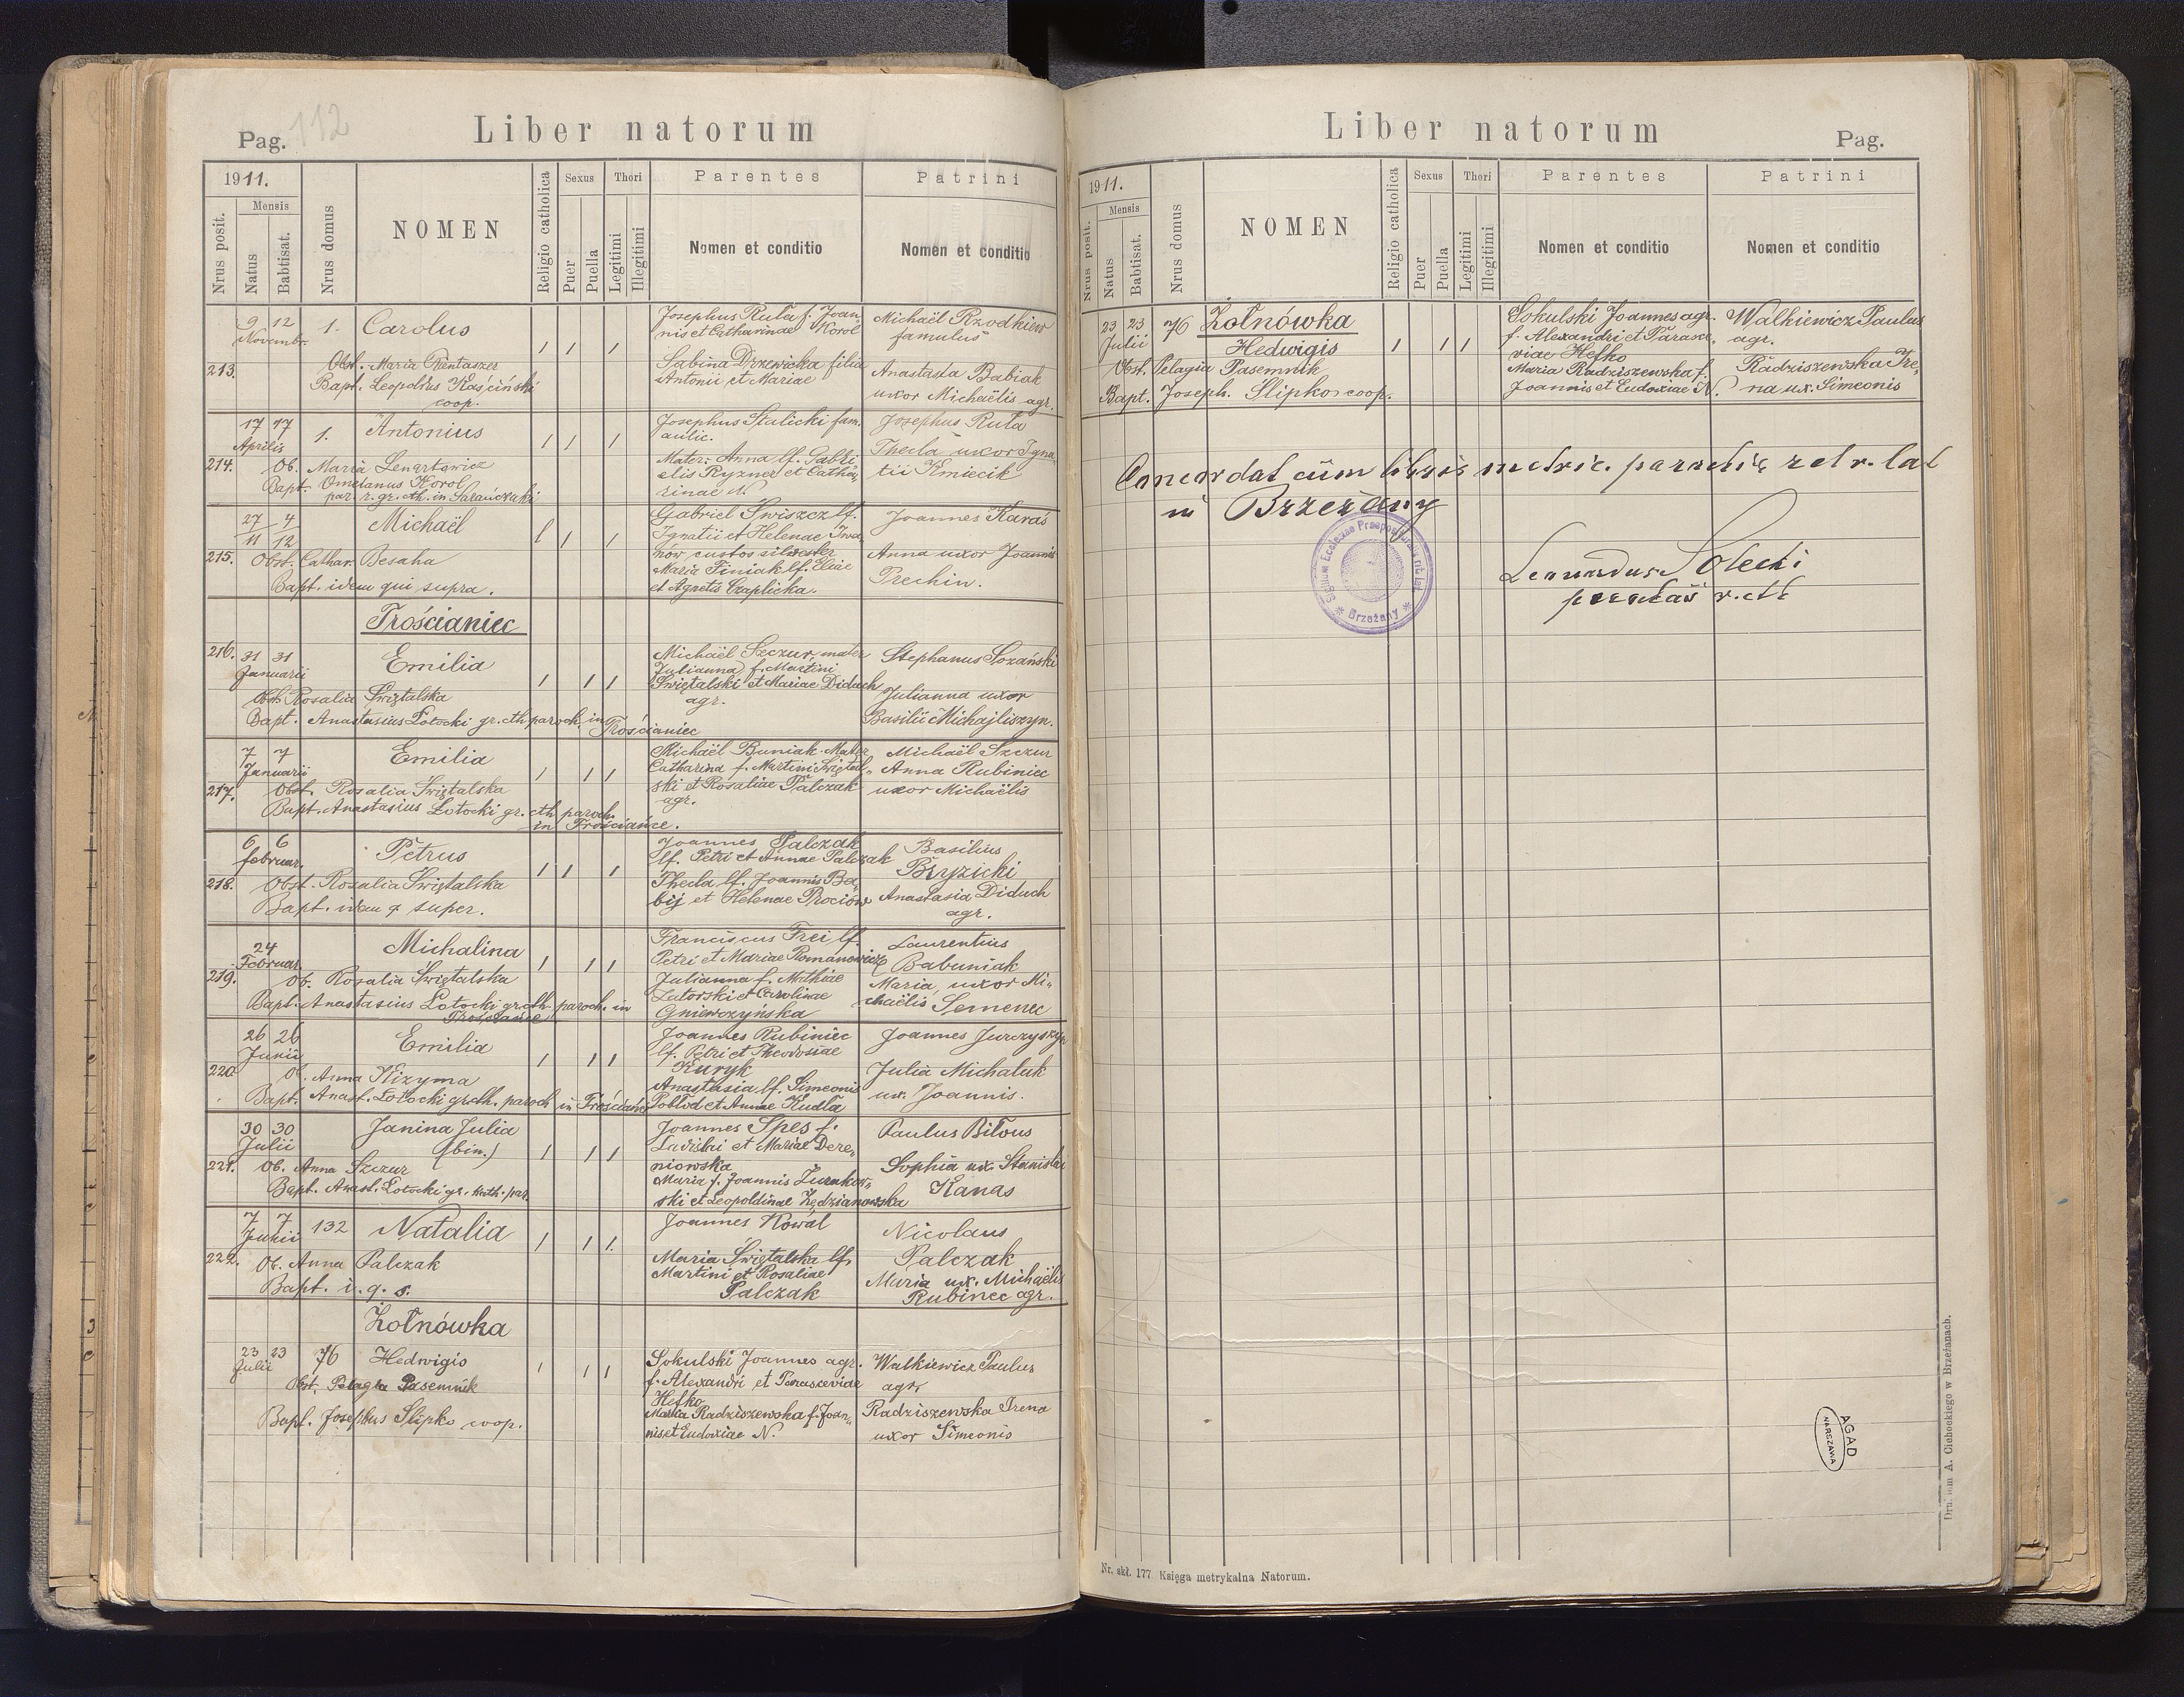 Pag. 112
Liber natorum
1911.
Mensis
Nrus posit.
Natus
Babtisat.
Nrus domus
NOMEN
Religio catholica
Sexus
Puer
Puella
Thori
Legitimi
Illegitimi
Parentes
Nomen et conditio
Patrini
Nomen et conditio
9 12
Novembr.
1.
Carolus
213.
Obst. Maria Wentaszer
Bapt. Leopoldus Kaściński
coop.
Josephus Ruta f. Joan
nis et Catharinae Korol
Sabina Drzewicka filia
Antonii et Mariae
Michaël Rzodkiew
famulus
Anastasia Babiak
uxor Michaëlis agr.
17 17
Aprilis
1.
Antonius
214.
Ob. Maria Lenartowicz
Bapt. Omelanus Korol
par. r. gr. cth. in Sarańczuki
Josephus Stalicki fam.
aulic.
Mater: Anna lf. Gabri
elis Ryzner et Catha,,
rinae N.
Josephus Ruta
Thecla uxor Igna
tii Kmiecik
27 4
11 12
Michaël
215.
Obst. Cathar. Besaha
Bapt. idem qui supra.
Gabriel Swiszcz lf.
Ignatii et Helenae Iwa
nów custos silvester
Maria Finiak lf. Eliae
et Agnetis Czaplicka.
Joannes Karaś
Anna uxor Joannis
Prechin.
Trościaniec
216.
31 31
Januarii
Emilia
Obst. Rosalia Świętalska
Bapt. Anastasius Łotocki gr. cth paroch. in Trościaniec
Michaël Szczur, mater
Julianna f. Martini
Świętalski et Mariae Diduch
agr.
Stephanus Sozański
Julianna uxor
Basilii Michajliszyn.
7 7
Januarii
Emilia
217.
Obst. Rosalia Świętalska
Bapt. Anastasius Łotocki gr. cth paroch.
in Trościańce.
Michaël Buniak. Mater
Catharina f. Martini Świętal,,
ski et Rosaliae Palczak
agr.
Michaël Szczur
Anna Rubiniec
uxor Michaëlis
6 6
februar.
Petrus
218.
Obst. Rosalia Świętalska
Bapt. idem q super.
Joannes Palczak
lf. Petri et Annae Palczak
Thecla lf. Joannis Ba,,
bij et Helenae Prociów
Basilius
Bryzicki
Anastasia Diduch
agr.
24
Februar.
Michalina
219.
Ob. Rosalia Świętalska
Bapt. Anastasius Łotocki gr cth. paroch. in
Trościańce
Franciscus Frei lf.
Petri et Mariae Romanowicz
Julianna f. Mathiae
Zatorski et Carolinae
Gniewczyńska
Laurentius
Babuniak
Maria, uxor Mi,,
chaëlis Semenec
26 26
Junii
Emilia
220.
Ob. Anna Kizyma
Bapt. Anast. Łotocki gr cth. paroch in Trościańce
Joannes Rubiniec
lf. Petri et Theodosiae
Kuryk
Anastasia lf. Simeonis
Połtod et Annae Kudla
Joannes Jurczyszyn
Julia Michaluk
ux. Joannis.
30 30
Julii
Janina Julia
(bin.)
221.
Ob. Anna Szczur
Bapt. Anast. Łotocki gr. kath. par.
Joannes Spes f.
Ladislai et Mariae Dere,,
niowska
Maria f. Joannis Żurakow,,
ski et Leopoldinae Zędzianowska
Paulus Biłous
Sophia ux. Stanislai
Kanas
7 7
Junii
132
Natalia
222.
Ob. Anna Palczak
Bapt. i. q. s.
Joannes Kowal
Maria Świętalska lf.
Martini et Rosaliae
Palczak
Nicolaus
Palczak
Maria ux. Michaëlis
Rubinec agr.
Żołnówka
23 23
Julii
76
Hedwigis
Obst. Pelagia Pasemnik
Bapt. Josephus Slipko coop.
Sokulski Joannes agr.
f. Alexandri et Parasceviae
Hefko
Maria Radziszewska f. Joan,,
nis et Eudoxiae N.
Walkiewicz Paulus
agr.
Radziszewska Irena
uxor Simeonis
Liber natorum
Pag.
1911.
Mensis
Nrus posit.
Natus
Babtisat.
Nrus domus
NOMEN
Religio catholica
Sexus
Puer
Puella
Thori
Legitimi
Illegitimi
Parentes
Nomen et conditio
Patrini
Nomen et conditio
23 23
Julii
76
Żołnówka
Hedwigis
Obst. Pelagia Pasemnik
Bapt. Joseph. Slipko coop.
Sokulski Joannes agr.
f. Alexandri et Parasce,,
viae Hefko
Maria Radziszewska f.
Joannis et Eudoxiae N.
Walkiewicz Paulus
agr.
Radziszewska Ire,,
na ux. Simeonis
Concordat cum libris metric. parochię rel r. lat
in Brzeżany
Sigillum Ecclesiae Praepositurali rit. lat. * Brzeżany *
Leonardus Solecki
AGAD
WARSZAWA
Drukiem A. Ciebockiego w Brzeżanach.
Nr. skł. 177 Księga metrykalna Natorum.